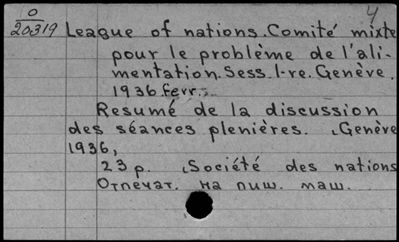 4
0
20319
League of nations. Comité mixte
pour le problème de l'ali-
mentation. Sess. 1-re. Genève.
1936. fevr.
Resumé de la discussion
des séances plenières. Genève
1936,
23 p. Société des nations
Отпечат. на пиш. маш.